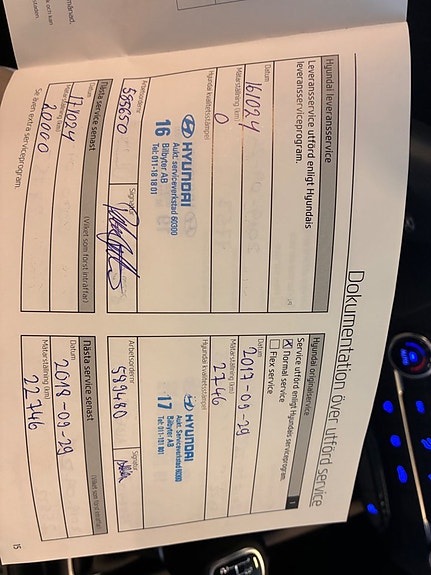 Dokumentation över utförd service
Hyundai leveransservice
Leveransservice utförd enligt Hyundais
leveransserviceprogram.
Datum
161024
Mätarställning (km)
0
Hyundai kvalitetsstämpel
HYUNDAI
Aukt. serviceverkstad 60300
16 Bilbyter AB
Tel: 011-18 18 01
Arbetsordernr
595650
Signatur
Nästa service senast
(Vilket som först inträffar)
Datum
171024
Mätarställning (km)
20000
Se även extra serviceprogram.
Hyundai originalservice
1
Service utförd enligt Hyundais serviceprogram.
Normal service
Flex service
Datum
2017-09-29
Mätarställning (km)
2746
Hyundai kvalitetsstämpel
HYUNDAI
Aukt. Serviceverkstad 60300
17 Bilbyter AB
Tel: 011-181 801
Arbetsordernr
599480
Signatur
Nästa service senast
(Vilket som först inträffar)
Datum
2018-09-29
Mätarställning (km)
22746
15